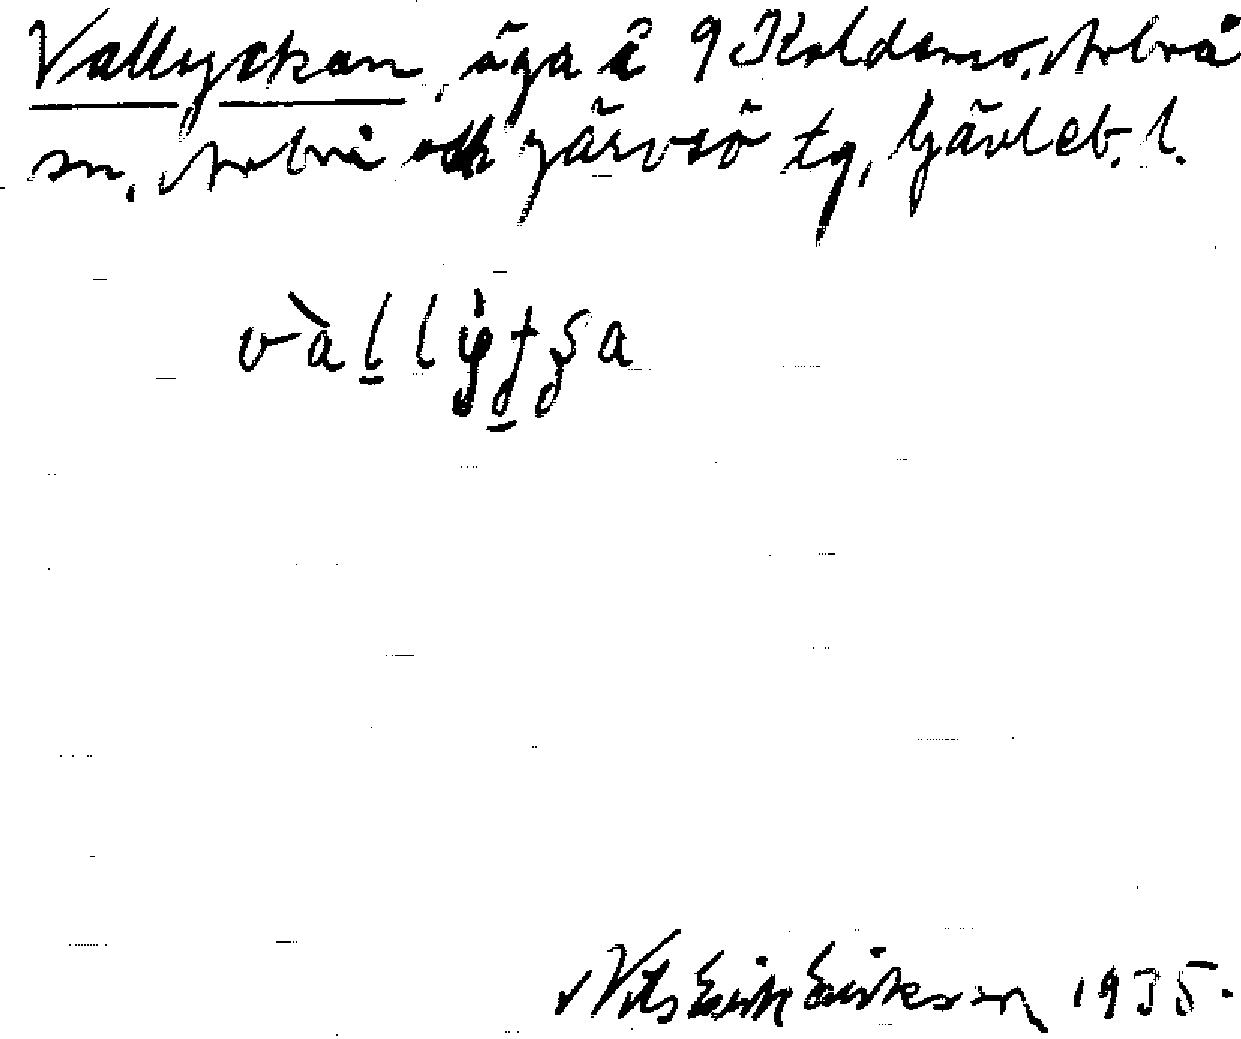 Vallyckan, äga å 9 Koldemo, Arbrå
sn, Arbrå och Järvsö tg, Gävleb. l.
vàllytʂa
Nils Erik Eriksson 1935.